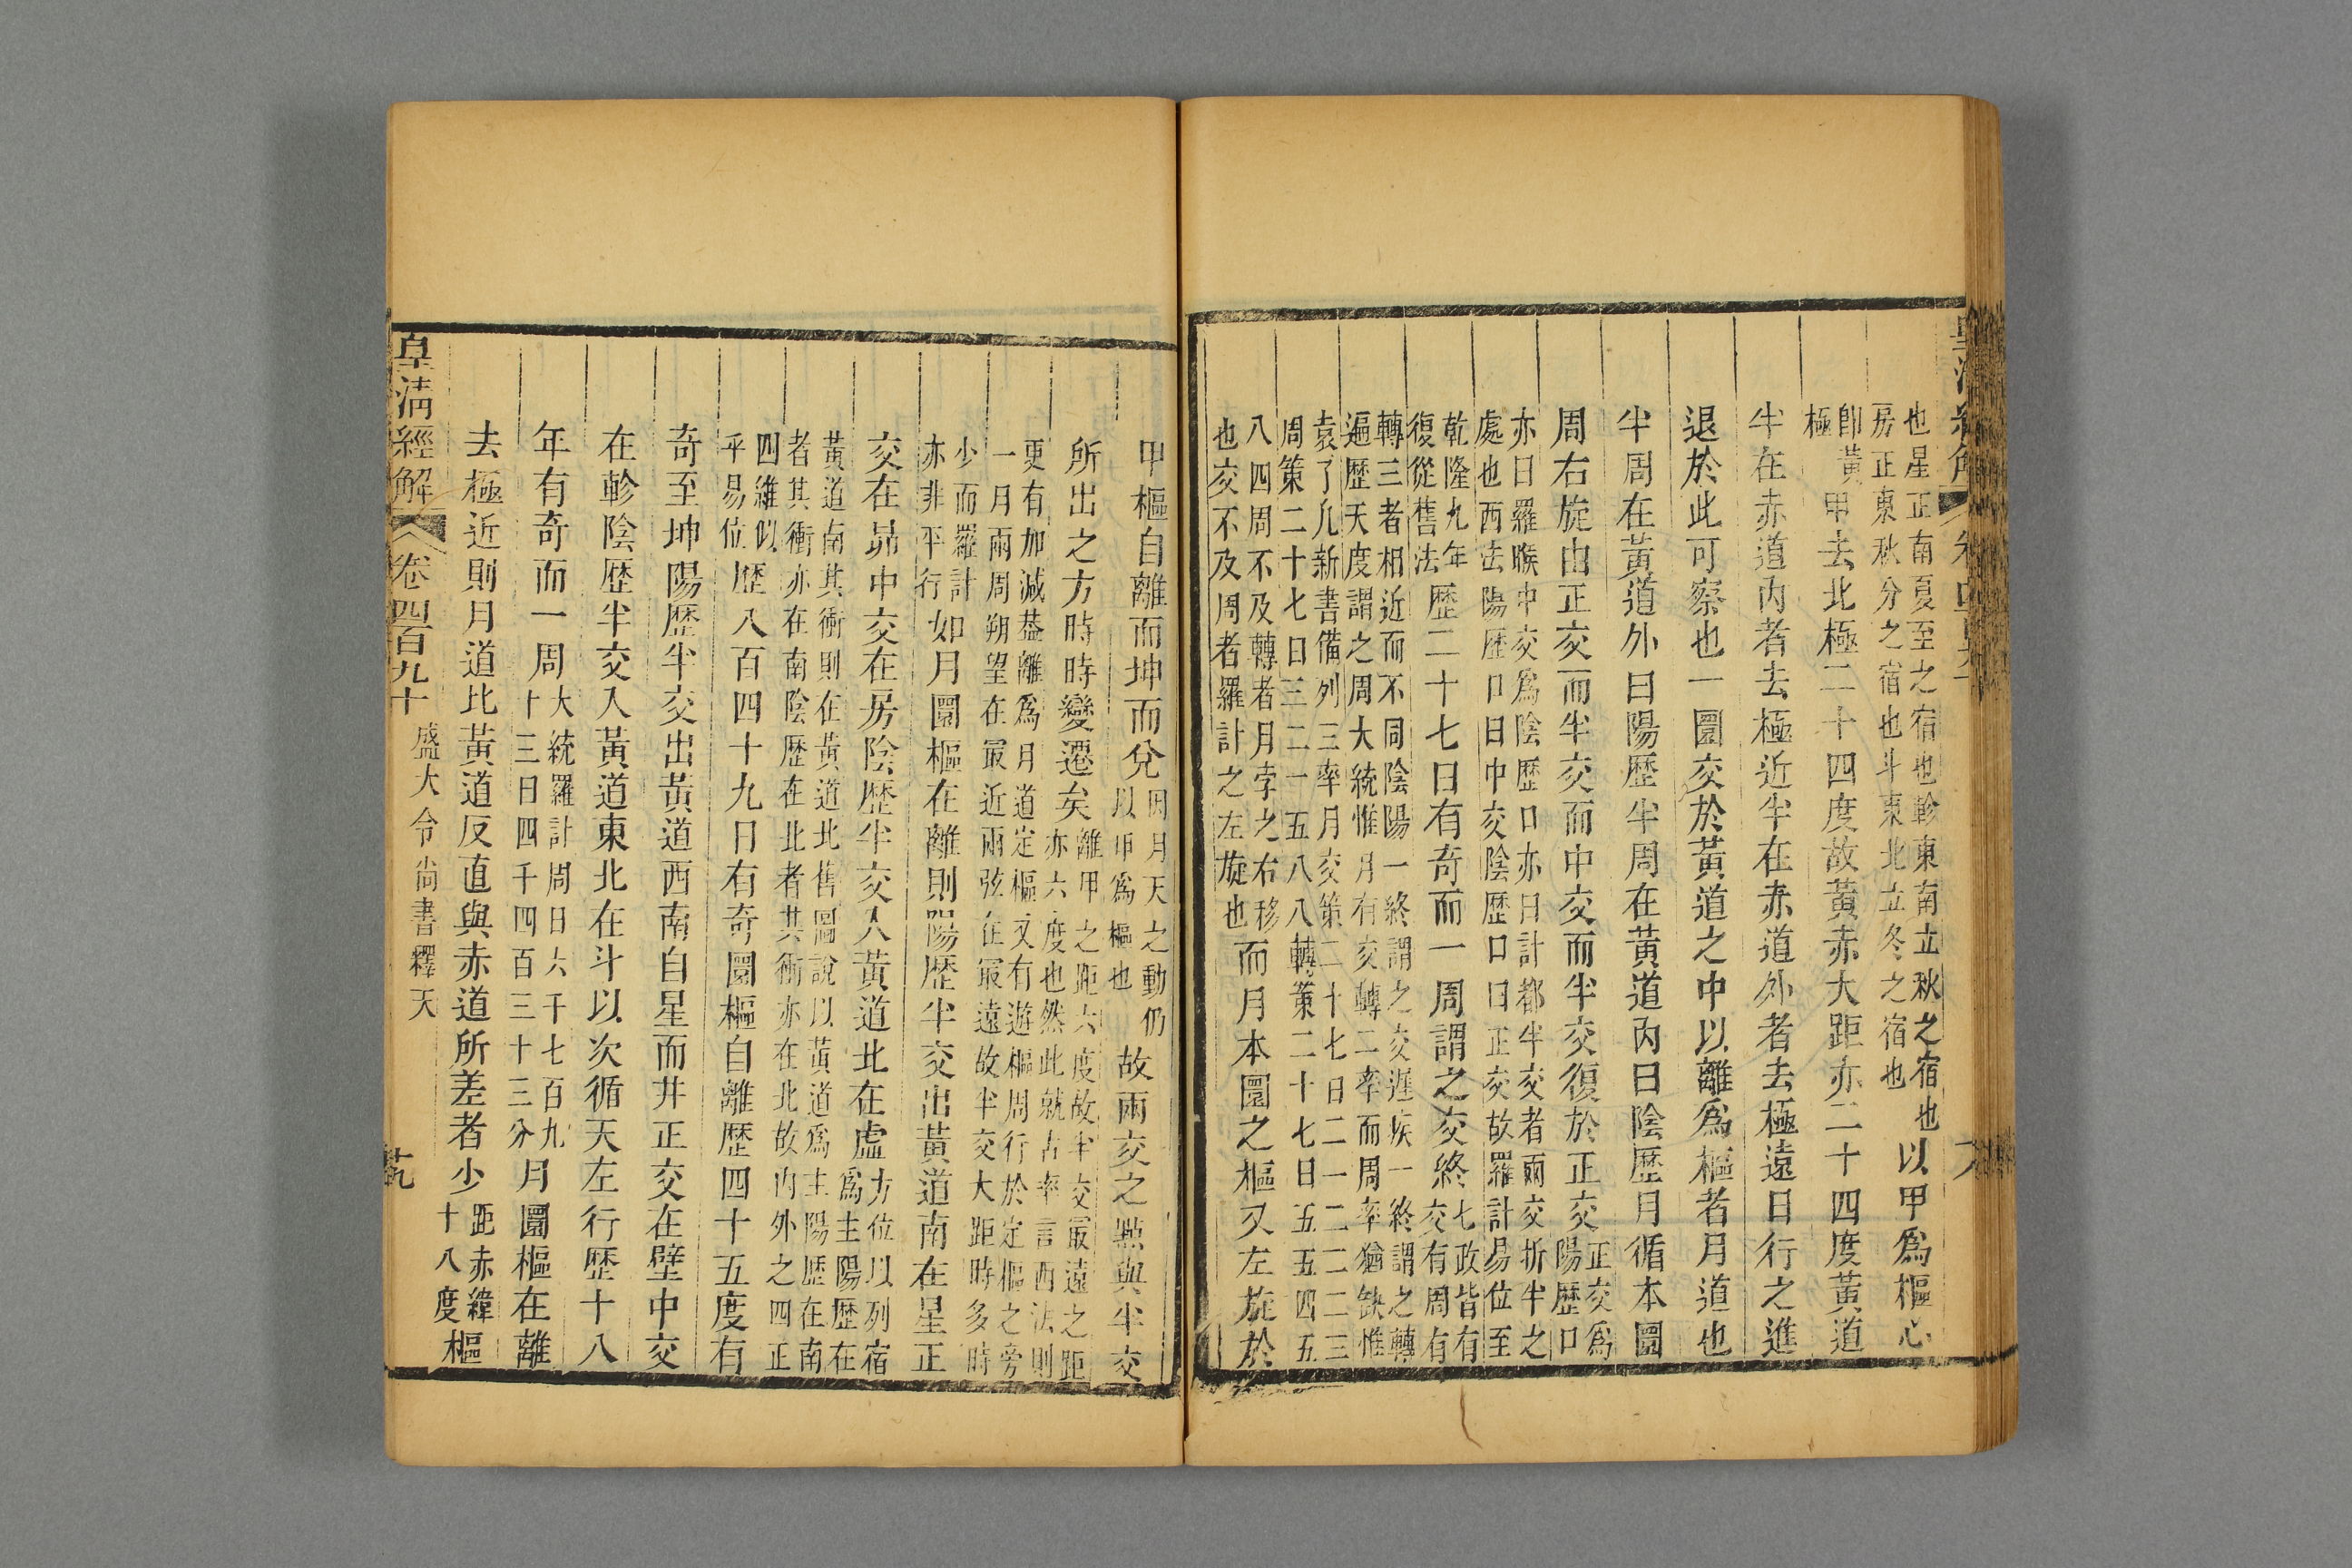 皇清經解 卷四百九十
也星正南夏至之宿也軫東南立秋之宿也
房正東秋分之宿也斗東北立冬之宿也以甲爲樞心
卽黃
極甲去北極二十四度故黃赤大距亦二十四度黃道
半在赤道內者去極近半在赤道外者去極遠日行之進
退於此可察也一圜交於黃道之中以離爲樞者月道也
半周在黃道外曰陽歷半周在黃道內曰陰歷月循本圜
周右旋由正交而半交而中交而半交復於正交正交爲陽歷口
亦曰羅睺中交爲陰歷口亦曰計都半交者兩交折半之
處也西法陽歷口曰中交陰歷口曰正交故羅計易位至
乾隆九年
復從舊法歷二十七日有奇而一周謂之交終七政皆有交有周有
轉三者相近而不同陰陽一終謂之交遲疾一終謂之轉
遍歷天度謂之周大統惟月有交轉二率而周率猶缺惟
袁了凡新書備列三率月交策二十七日二一二二二三
周策二十七日三二一五八八轉策二十七日五五四五
八四周不及轉者月孛之右移
也交不及周者羅計之左旋也而月本圜之樞又左旋於
甲樞自離而坤而兌因月天之動仍以甲爲樞也故兩交之㸃與半交
所出之方時時變遷矣離甲之距六度故半交最遠之距亦六度也然此就古率言西法則
更有加減葢離爲月道定樞又有遊樞周行於定樞之旁
一月兩周朔望在最近兩弦在最遠故半交大距時多時
少而羅計
亦非平行如月圜樞在離則陽歷半交出黃道南在星正
交在昴中交在房陰歷半交入黃道北在虛方位以列宿爲主陽歷在
黃道南其衝則在黃道北舊圖說以黃道爲主陽歷在南
者其衝亦在南陰歷在北者其衝亦在北故內外之四正
四維似
平易位歷八百四十九日有奇圜樞自離歷四十五度有
奇至坤陽歷半交出黃道西南自星而井正交在壁中交
在軫陰歷半交入黃道東北在斗以次循天左行歷十八
年有奇而一周大統羅計周日六千七百九十三日四千四百三十三分月圜樞在離
去極近則月道比黃道反直與赤道所差者少距赤緯十八度樞
皇清經解 卷四百九十 盛大令尚書釋天